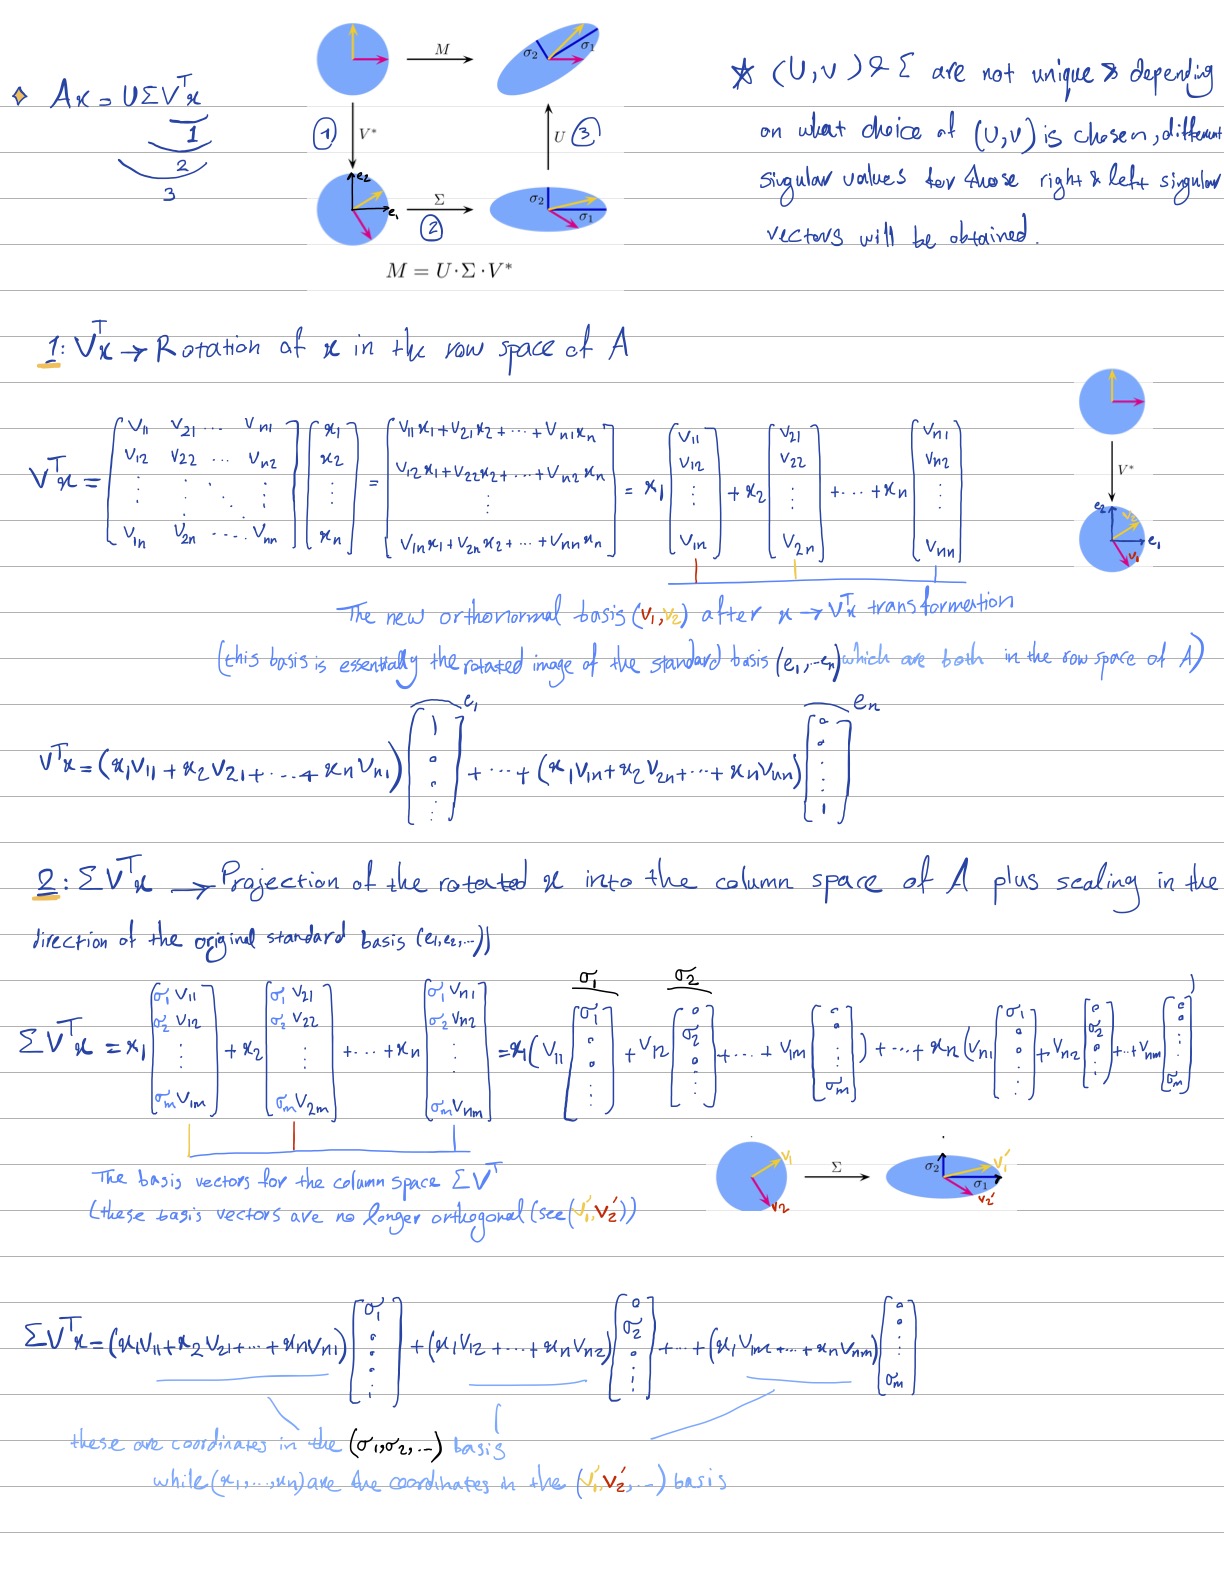 Ax = UΣVᵀx
1
2
3
M
σ₂ σ₁
① V* U ③
e₂
e₁ Σ ② σ₂ σ₁
M = U·Σ·V*
☆ (U,V) & Σ are not unique & depending
on what choice of (U,V) is chosen, different
singular values for those right & left singular
vectors will be obtained.
1: Vᵀx → Rotation of x in the row space of A
Vᵀx = [V11 V21 ... Vn1; V12 V22 ... Vn2; ⋮ ; V1n V2n .... Vnn] [x1; x2; ⋮; xn] = [V11x1+V21x2+...+Vn1xn; V12x1+V22x2+...+Vn2xn; ⋮; V1nx1+V2nx2+...+Vnnxn] = x1 [V11; V12; ⋮; V1n] + x2 [V21; V22; ⋮; V2n] +...+ xn [Vn1; Vn2; ⋮; Vnn]
V*
e₂ V₂
e₁
V₁
The new orthonormal basis (V₁,V₂) after x → Vᵀx transformation
(this basis is essentially the rotated image of the standard basis (e₁,..eₙ) which are both in the row space of A)
e₁ eₙ
Vᵀx = (x1V11 + x2V21 + ... + xnVn1) [1; 0; 0; ⋮] + ... + (x1V1n + x2V2n + ... + xnVnn) [0; 0; ⋮; 1]
2: ΣVᵀx → Projection of the rotated x into the column space of A plus scaling in the
direction of the original standard basis (e₁,e₂,...))
σ₁ σ₂
ΣVᵀx = x1 [σ1V11; σ2V12; ⋮; σmV1m] + x2 [σ1V21; σ2V22; ⋮; σmV2m] + ... + xn [σ1Vn1; σ2Vn2; ⋮; σmVnm] = x1 (V11 [σ1; 0; 0; ⋮] + V12 [0; σ2; 0; ⋮] + ... + V1m [0; 0; ⋮; σm]) + ... + xn (Vn1 [σ1; 0; 0; ⋮] + Vn2 [0; σ2; 0; ⋮] + ... + Vnm [0; 0; ⋮; σm])
The basis vectors for the column space ΣVᵀ
(these basis vectors are no longer orthogonal (see (V₁',V₂'))
V₁ Σ σ₂ V₁'
V₂ σ₁ V₂'
ΣVᵀx = (x1V11+x2V21+...+xnVn1) [σ1; 0; 0; ⋮] + (x1V12+...+xnVn2) [0; σ2; 0; ⋮] + ... + (x1V1m+...+xnVnm) [0; 0; ⋮; σm]
these are coordinates in the (σ₁,σ₂,...) basis
while (x1,...,xn) are the coordinates in the (V₁',V₂',...) basis